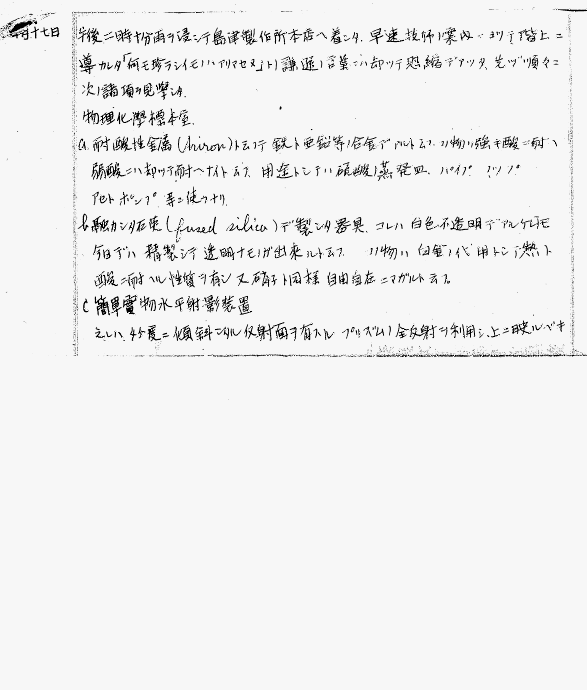 月十七日
午後二時十分雨ヲ浸シテ島津製作所本店ヘ着シタ、早速技師ノ案内ニヨリテ階上ニ
導カレタ「何モ珍ラシイモノハアリマセヌ」トノ謙遜ノ言葉ニハ却ッテ恐縮デアッタ、先ヅ順々ニ
次ノ諸項ヲ見學シタ
物理化學標本室
a. 耐酸性金属(hiron)ト云フテ鉄ト亜鉛等ノ合金デアルト云フ 此物ハ強キ酸ニ耐ヘ
弱酸ニハ却ッテ耐ヘナイト云フ、用途トシテハ硫酸ノ蒸発皿、パイプ
ポンプ 等ニ使フナリ
b. 融カシタ石英(fused silica)デ製シタ器具、コレハ白色不透明デアルケレドモ
今日デハ精製シテ透明ナモノガ出来ルト云フ 此物ハ白金ノ代用トシテ熱ト
酸ニ耐ヘル性質ヲ有シ又硝子ト同様自由自在ニマガルト云フ
C 簡單實物水平射影装置
之レハ、45度ニ傾斜シタル反射面ヲ有スル プリズムノ全反射ヲ利用シ、上ニ映ルベキ